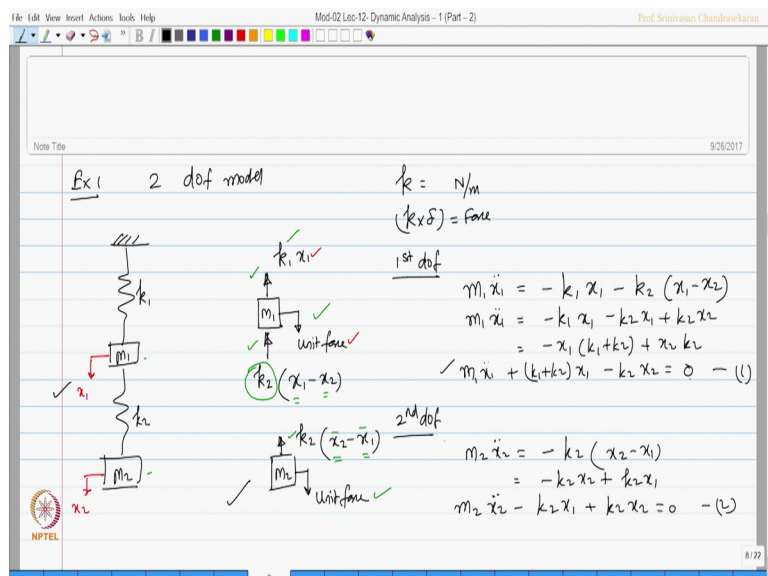 File Edit View Insert Actions Tools Help
Mod-02 Lec-12- Dynamic Analysis – 1 (Part – 2)
Prof. Srinivasan Chandrasekaran
B I
Note Title
9/26/2017
Ex1 2 dof model
k = N/m
(k×δ) = Force
k1
m1
x1
k2
m2
x2
k1 x1
m1
unit force
k2 (x1-x2)
1st dof
m1ẍ1 = -k1 x1 - k2 (x1-x2)
m1ẍ1 = -k1 x1 - k2 x1 + k2 x2
= -x1 (k1+k2) + x2 k2
m1ẍ1 + (k1+k2) x1 - k2 x2 = 0 - (1)
k2 (x2-x1)
m2
unit force
2nd dof
m2 ẍ2 = - k2 (x2-x1)
= -k2 x2 + k2 x1
m2 ẍ2 - k2 x1 + k2 x2 = 0 - (2)
NPTEL
8 / 22